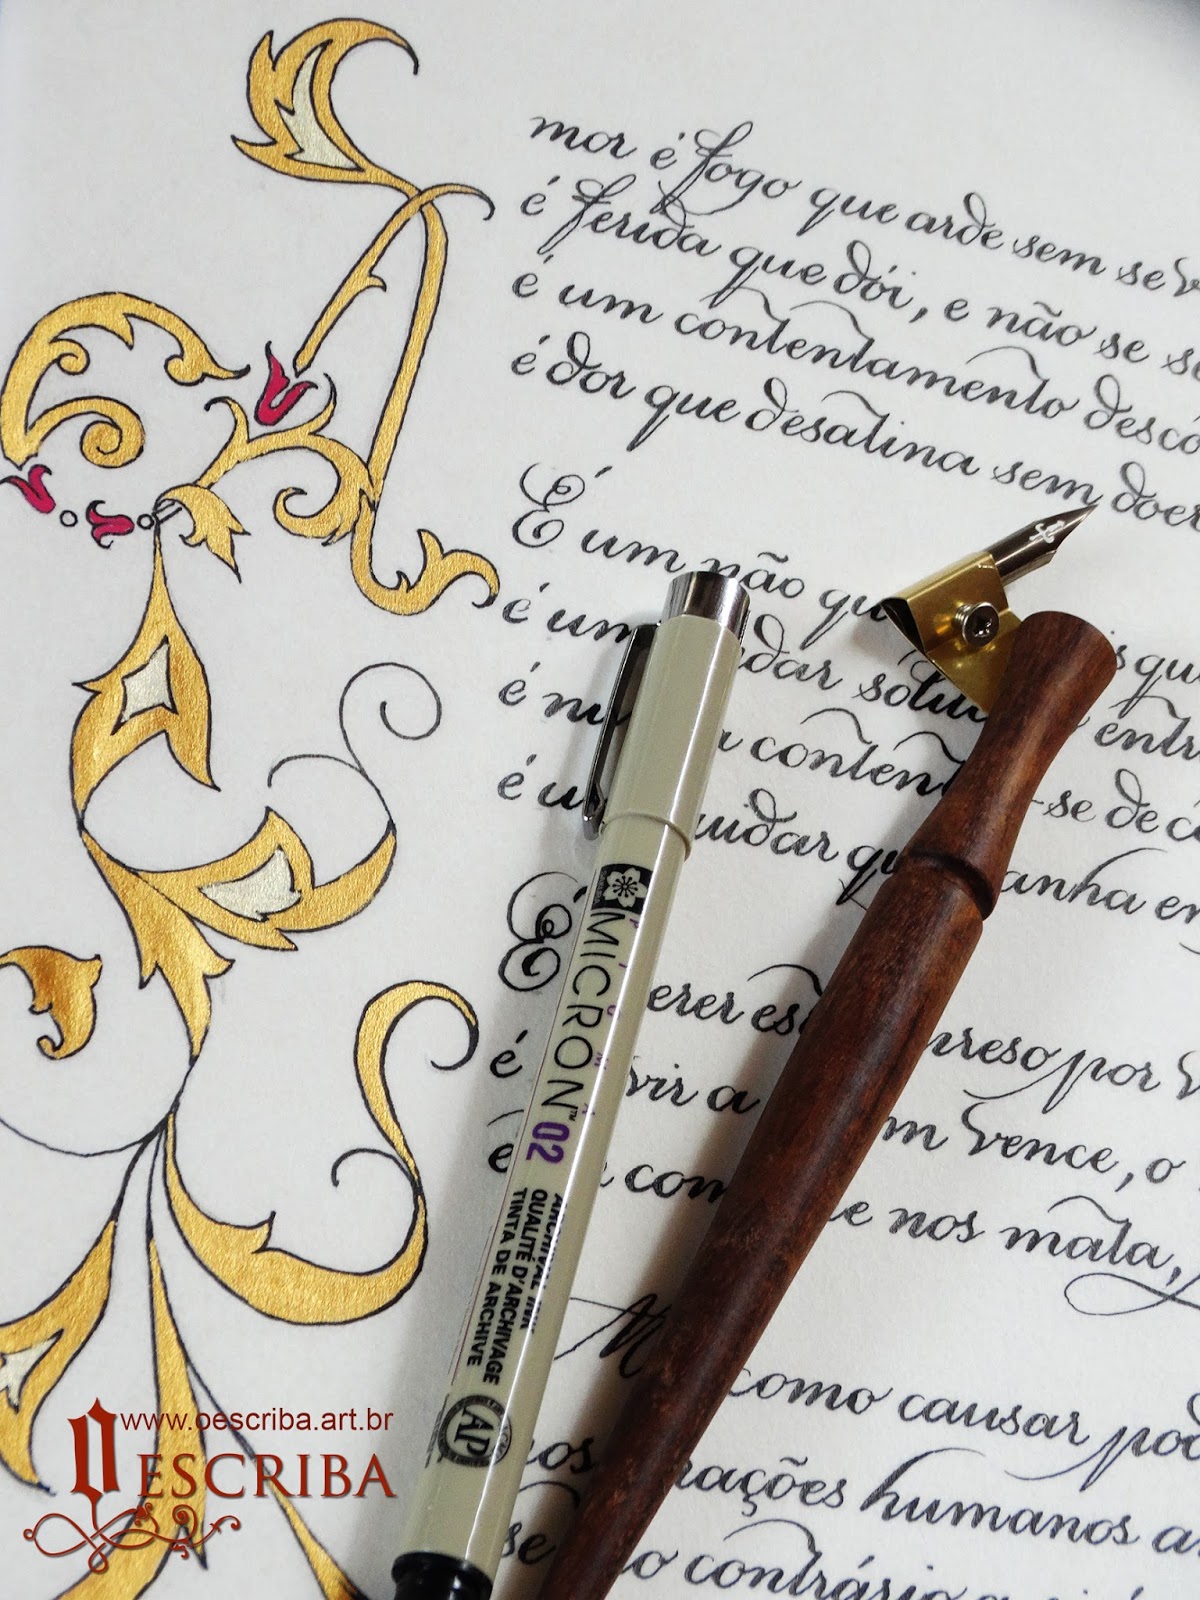 mor é fogo que arde sem se v
é ferida que dói, e não se se
é um contentamento descó
é dor que desatina sem doer
É um não qu isqu
é um dar solit entr
é n a contен -se de c
é u uidar qu anha e
É erer est preso por v
é vir a m vence, o
com e nos mata,
M como causar pod
nos rações humanos a
se o contrário a
MICRON™ 02
ARCHIVAL INK
QUALITÉ D'ARCHIVAGE
TINTA DE ARCHIVE
AP
www.oescriba.art.br
O ESCRIBA